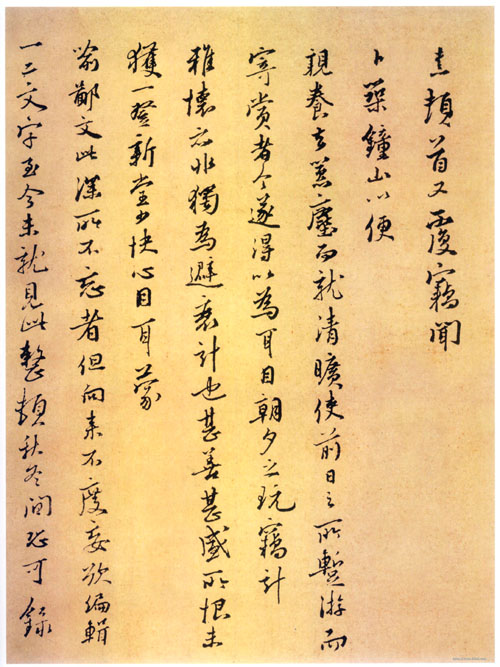 熹頓首又覆竊聞
卜築鐘山以便
親養去囂塵而就清曠使前日之所暫游而
寄賞者今遂得以為耳目朝夕之玩竊計
雅懷亦非獨為避衰計也甚善甚感所恨未
獲一登新堂少快心目耳蒙
喻鄙文此深所不忘者但向來不度妄欲編輯
一二文字至今未就見此整頓秋冬間恐可錄